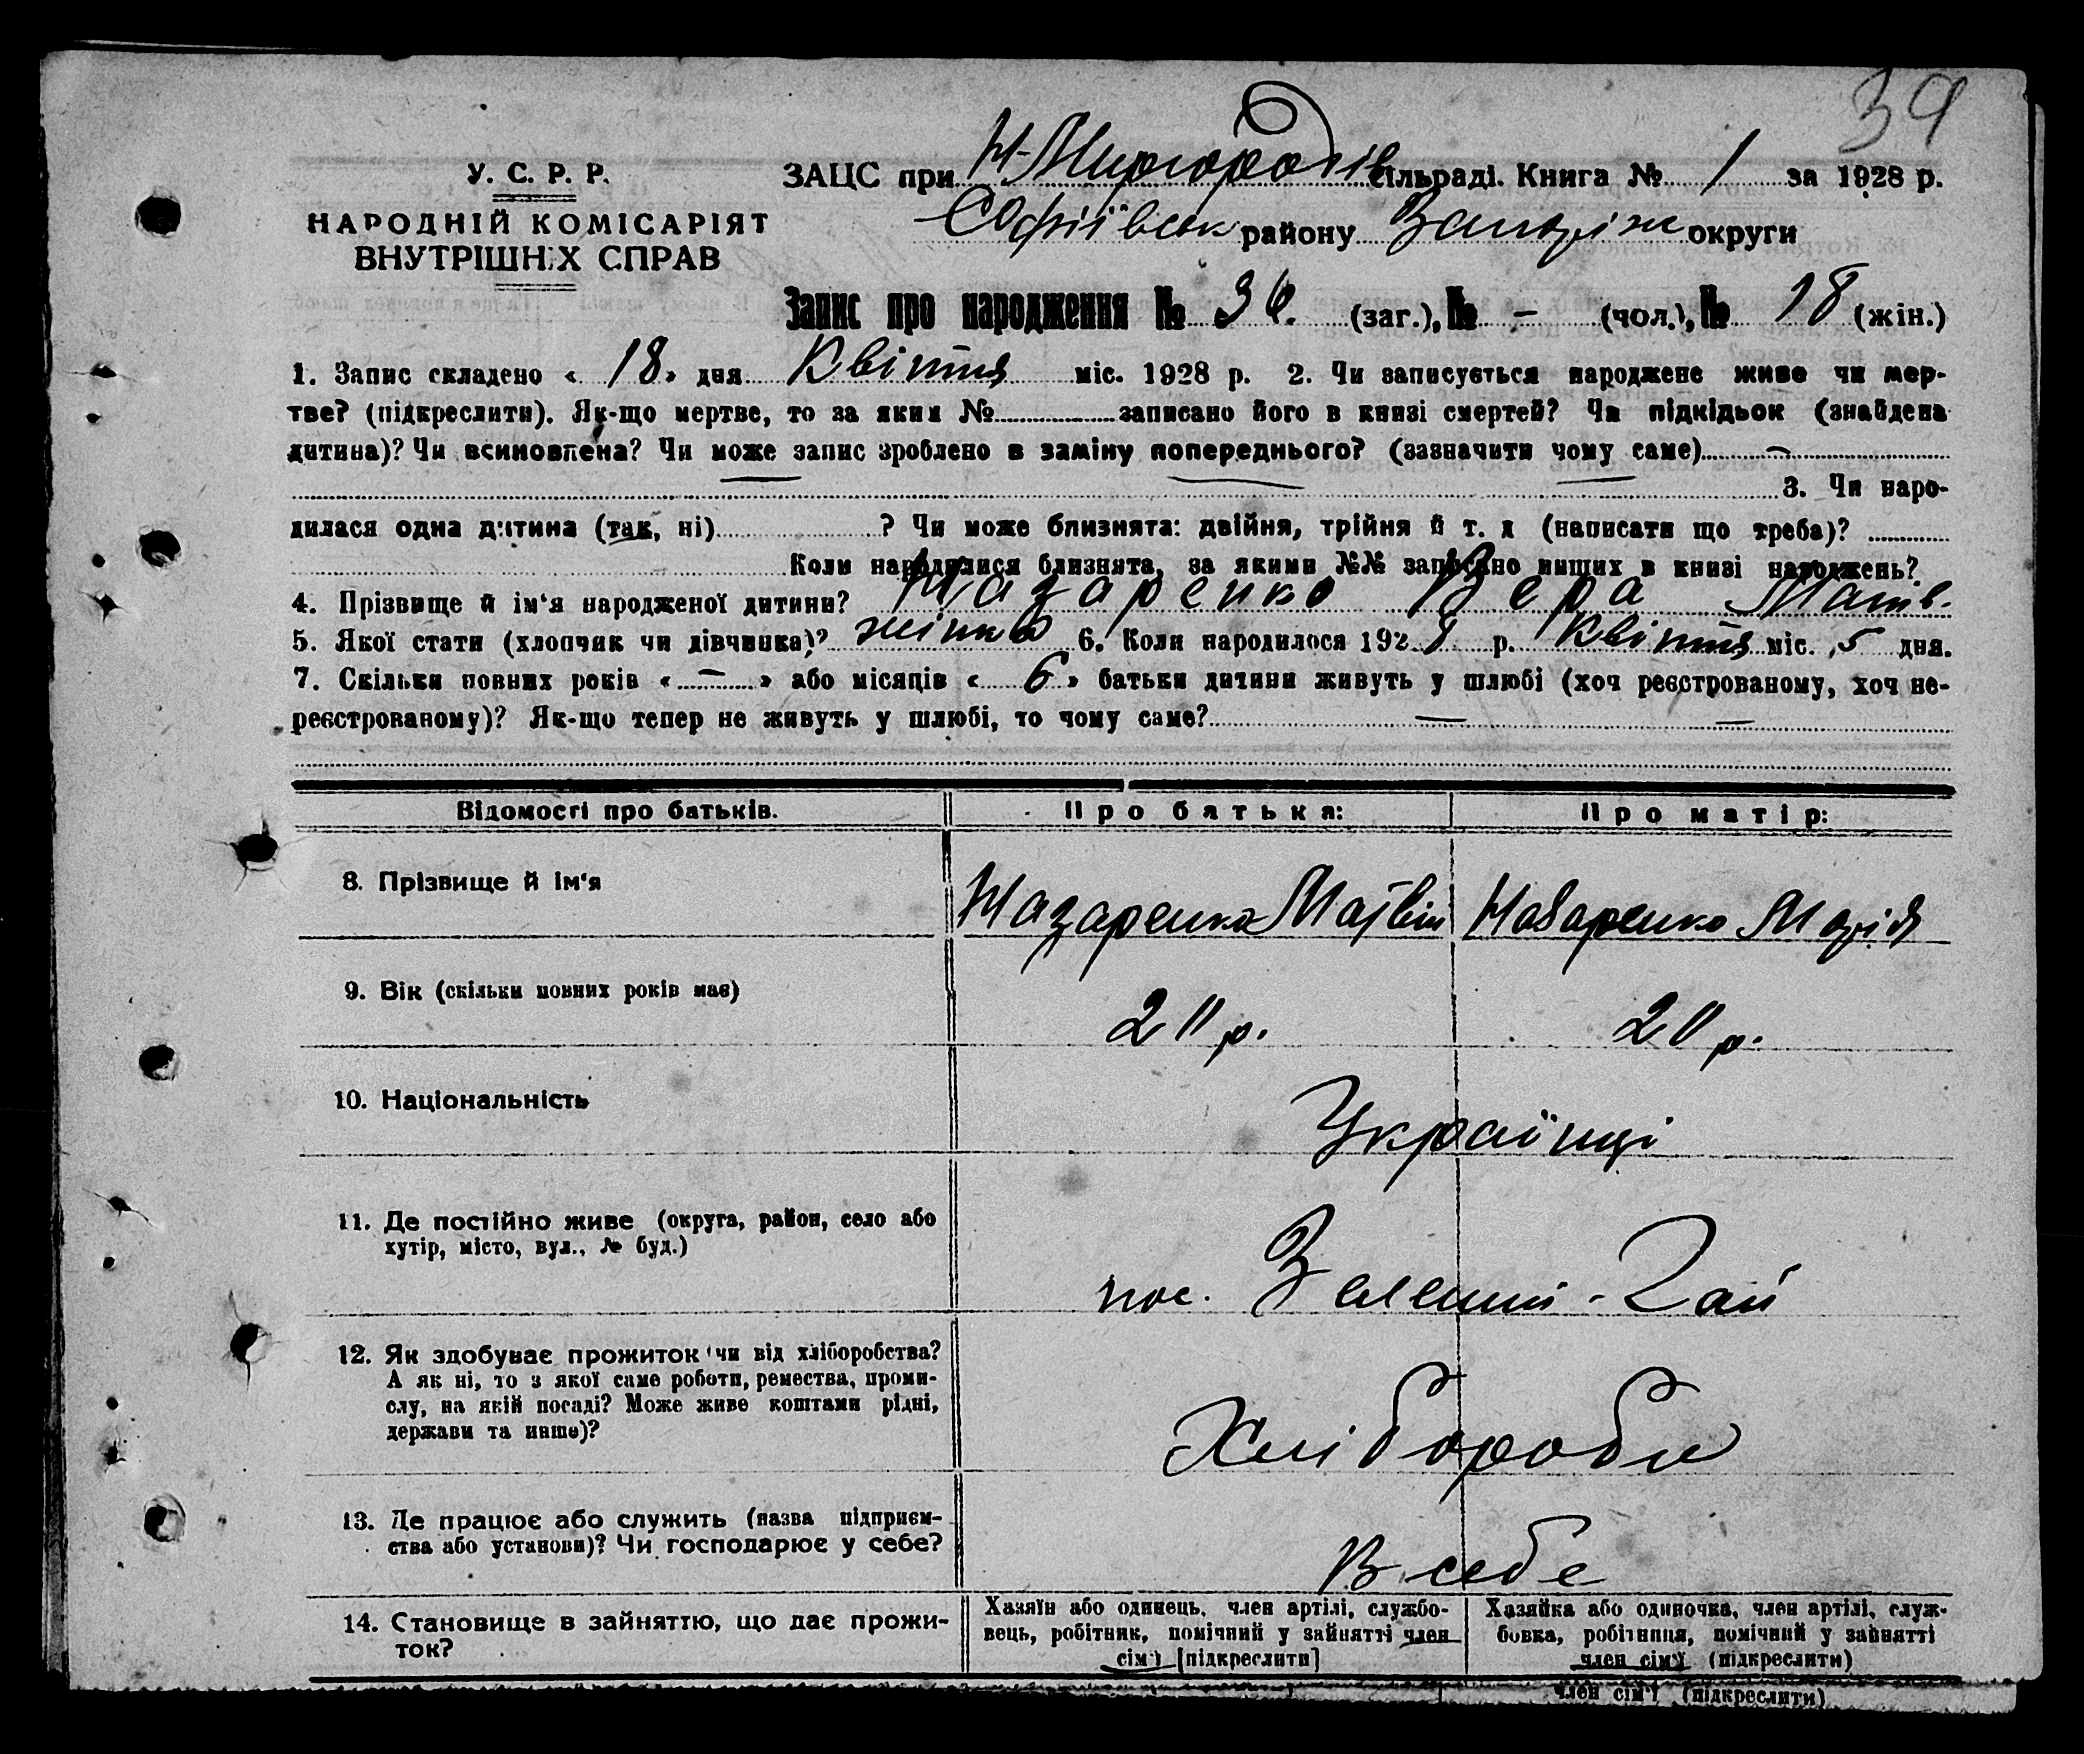 39
У. С. Р. Р.
НАРОДНІЙ КОМІСАРІЯТ
ВНУТРІШНІХ СПРАВ
ЗАЦС при Н-Миргородків сільраді. Книга № 1 за 1928 р.
Софіївськ району Запоріж округи
Запис про народження № 36. (заг.), № - (чол.), № 18 (жін.)
1. Запис складено « 18 » дня Квітня міс. 1928 р. 2. Чи записується народжене живе чи мер-
тве? (підкреслити). Як-що мертве, то за яким № записано його в книзі смертей? Чи підкідьок (знайдена
дитина)? Чи всиновлена? Чи може запис зроблено в заміну попереднього? (зазначити чому саме) —
3. Чи наро-
дилася одна дитина (так, ні) ? Чи може близнята: двійня, трійня й т. д (написати що треба)?
Коли народилися близнята, за якими №№ записано инших в книзі народжень?
4. Прізвище й ім‘я народженої дитини? Назаренко Вера Матв.
5. Якої стати (хлопчик чи дівчинка)? жінка 6. Коли народилося 1928 р. Квітня міс. 5 дня.
7. Скільки повних років « — » або місяців « 6 » батьки дитини живуть у шлюбі (хоч реєстрованому, хоч не-
реєстрованому)? Як-що тепер не живуть у шлюбі, то чому саме? — —
Відомості про батьків. Про батька: Про матір:
8. Прізвище й ім‘я Назаренко Матвій Назаренко Марія
9. Вік (скільки повних років має) 20 р. 20 р.
10. Національність Українці
11. Де постійно живе (округа, район, село або
хутір, місто, вул., № буд.) пос. Зелений-Гай
12. Як здобуває прожиток чи від хліборобства?
А як ні, то з якої саме роботи, ремества, проми-
слу, на якій посаді? Може живе коштами рідні,
держави та инше)? Хлібороби
13. Де працює або служить (назва підприєм-
ства або установи)? Чи господарює у себе? В себе
14. Становище в зайняттю, що дає прожи-
ток?
Хазяїн або одинець, член артілі, службо-
вець, робітник, помічний у зайнятті член
сім‘ї [підкреслити]
Хазяйка або одиночка, член артілі, служ-
бовка, робітниця, помічний у зайнятті
член сім‘ї (підкреслити)
член сім‘ї (підкреслити)